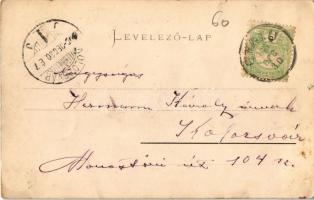 60
LEVELEZŐ-LAP
Nagyságos
Herrmann Károly úrnak
Kolozsvár
Monostori út 104 sz.